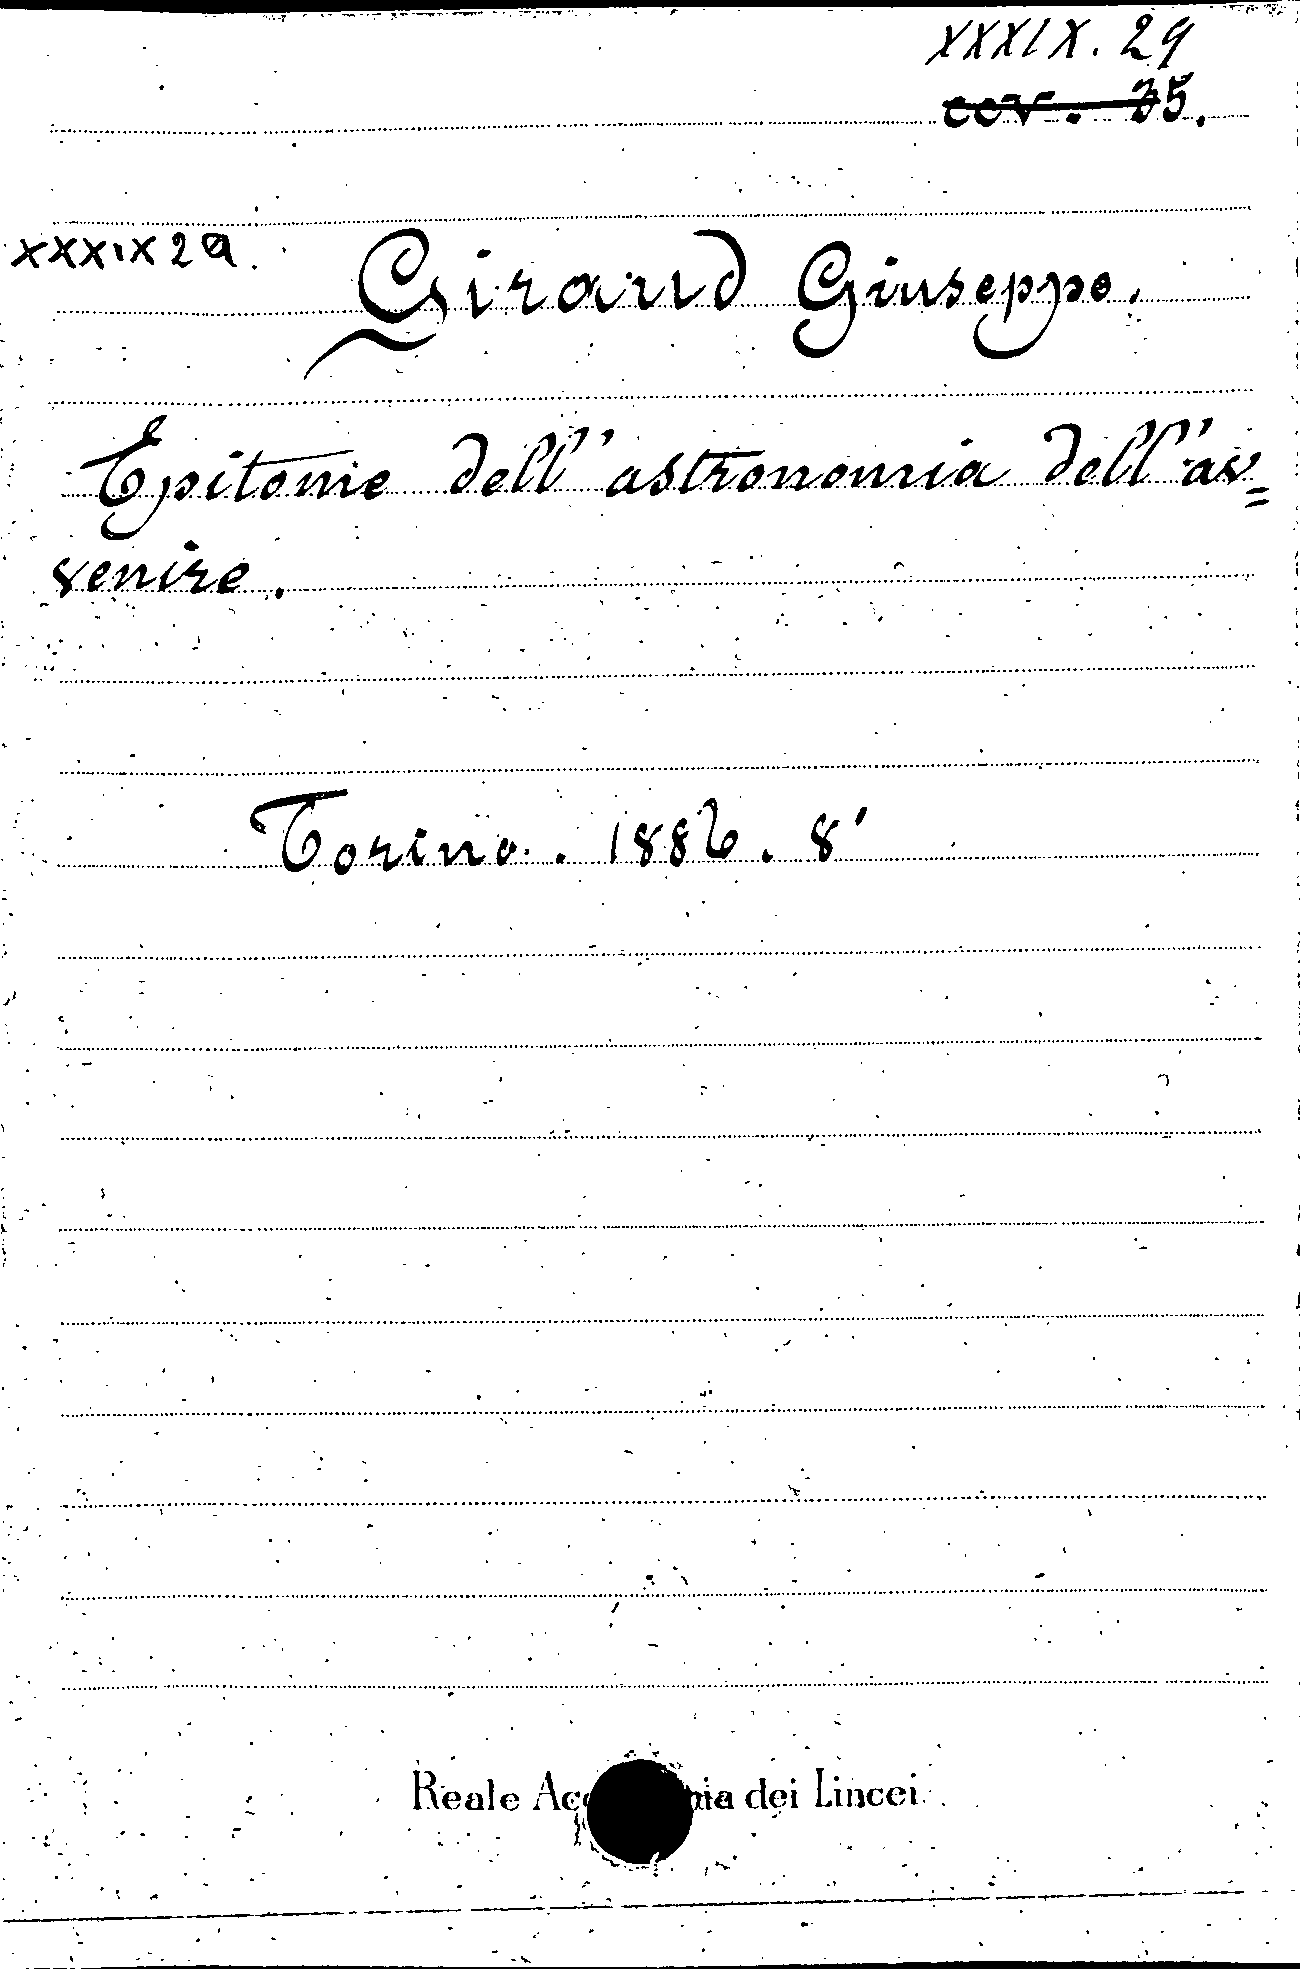 XXXIX. 29
CCV. 35.
XXXIX 29.
Giraud Giuseppe.
Epitome dell'astronomia dell'av=
venire.
Torino. 1886. 8°
Reale Acc mia dei Lincei